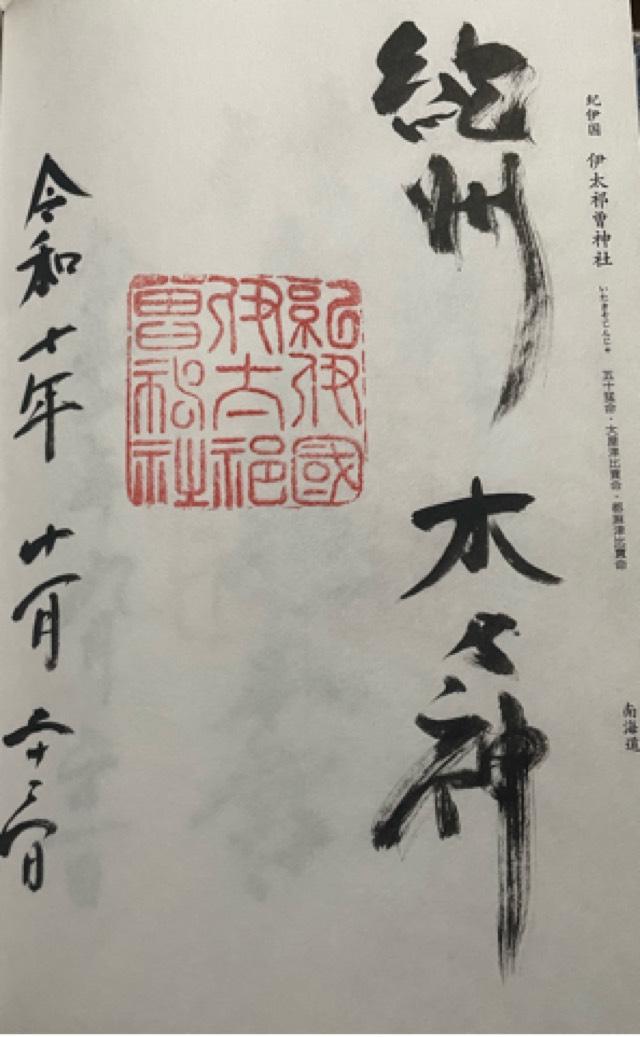 紀伊国 伊太祁曽神社 いたきそじんじゃ 五十猛命・大屋津比賣命・都麻津比賣命 南海道
紀州 木 神
紀伊國
伊太祁
曽神社
令和七年 十一月 二十三日